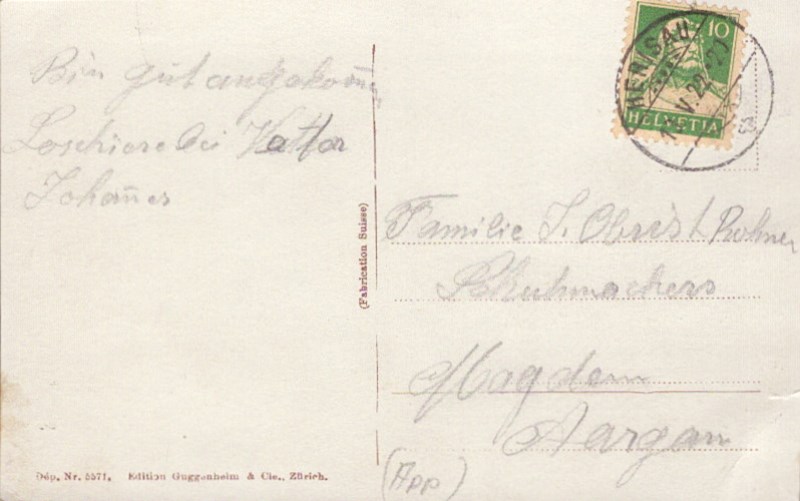 Bin gut angekom̄en
Loschiere bei Vattor
Johan̄es
(Fabrication Suisse)
10
HELVETIA
HERISAU
V.20
Familie J. Obrist Rohner
Schuhmachers
Magden
Aargau
(App)
Dép. Nr. 5571. Edition Guggenheim & Cie., Zürich.